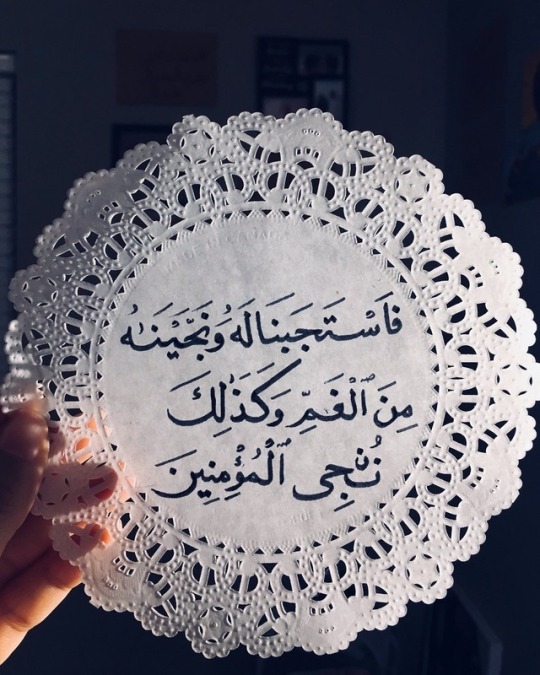 فَاسْتَجَبْنَا لَهُ وَنَجَّيْنَٰهُ
مِنَ ٱلْغَمِّ وَكَذَٰلِكَ
نُۨجِى ٱلْمُؤْمِنِينَ